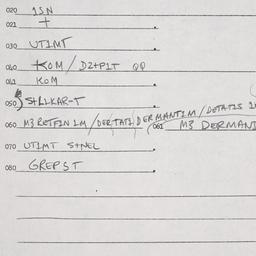 020 1SN
021 +
030 UT1MT
040 KOM / D2+P1T QQ
041 KOM
050 S+LLKAR-T
060 M3 RETFIN 1M / DERTAT1 DERMANT1M / DETAT1S
061 M3 DERMANT
070 UT1MT S+NEL
080 GREPST